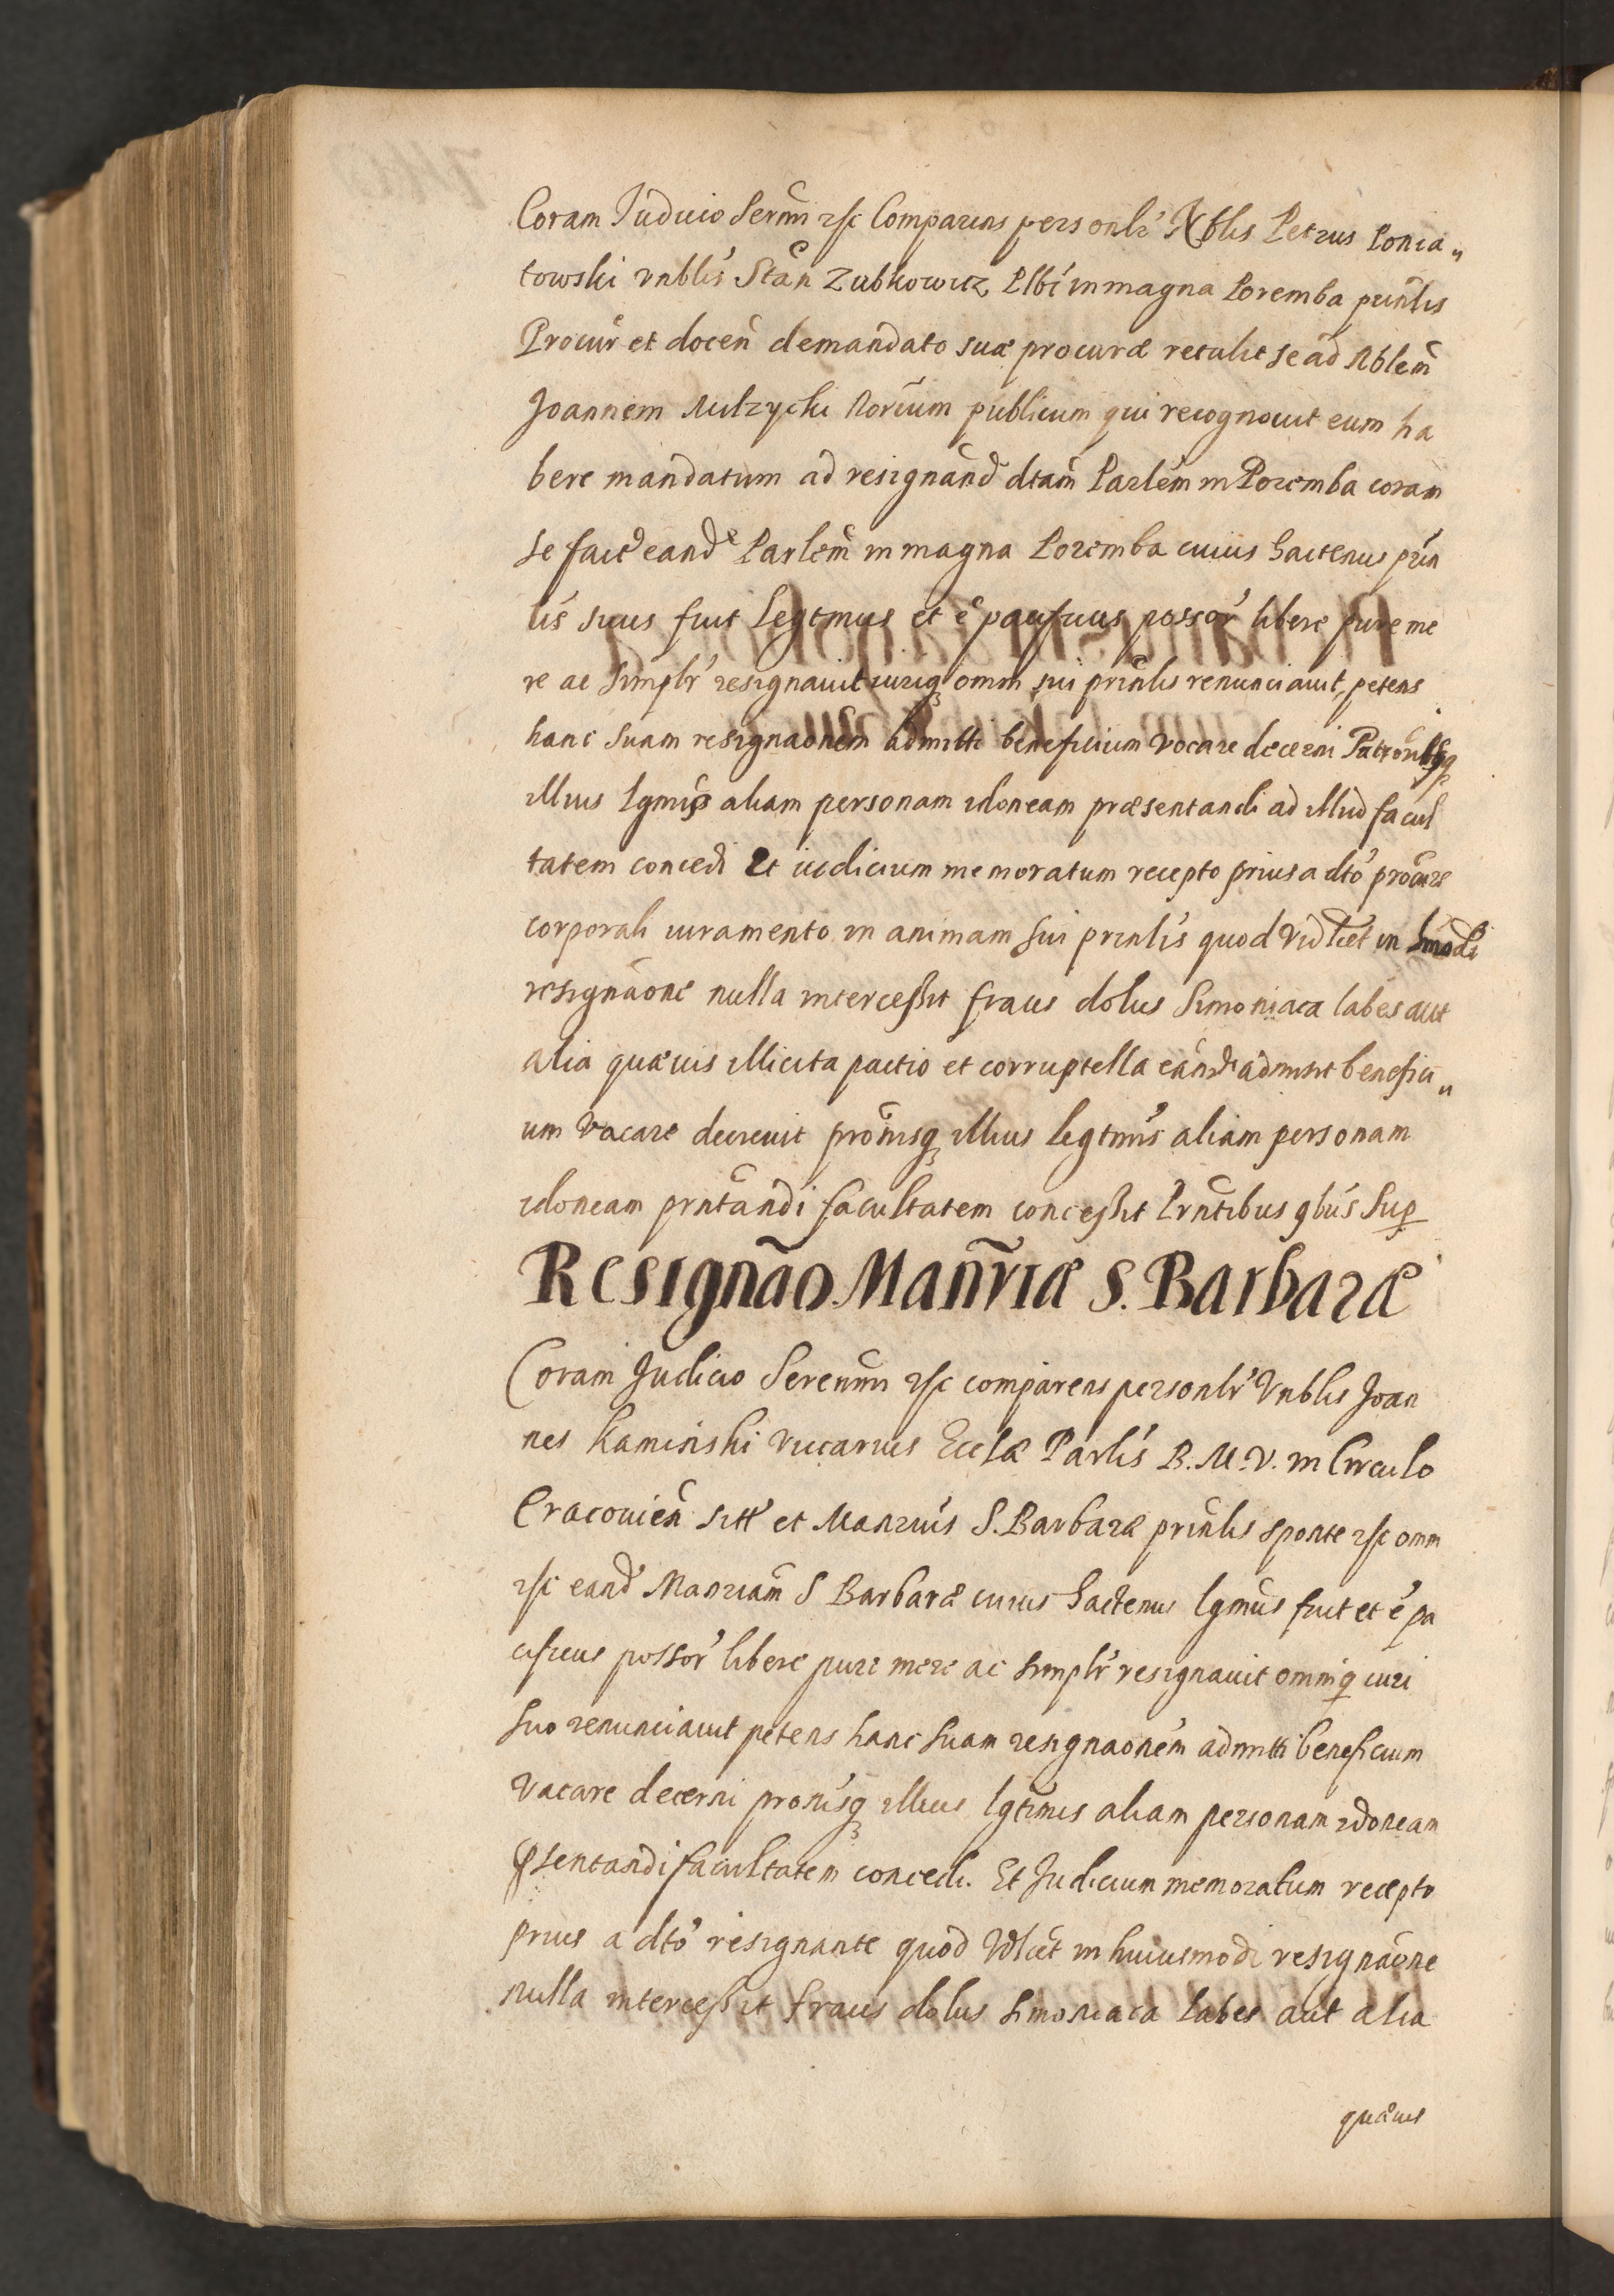 Coram Judicio Serñm etc Comparens personlr̃ Nblis Petrus Ponia„
towski vnblis Stãn Zubkowicz Plbĩ in magna Poremba prinlis
Procur et docen̄ de mandato suæ procuræ retulit se ad Nblem̃
Joannem Milzycki Norium publicum qui recognouit eum ha
bere mandatum ad resignand̃ dtam̃ Parlem̃ in Poremba coram
se fact eand̃ Parlem̃ in magna Poremba cuius hactenus prin
lis suus fuit Legtmus et ẽ pacificus possor̃ libere pure me
re ac simplr̃ resignauit iuriq; omni sui prinlis renunciauit, petens
hanc suam resignaonem̃ admitti beneficium vocare decerni Patronisq;
illius Lgmis aliam personam idoneam præsentandi ad illud facul
tatem concedi Et iudicium memoratum recepto prius a dto procure
corporali iuramento in animam sui prinlis quod vidlicet in hmodi
resignaone nulla intercessit fraus dolus Simoniaca labes aut
alia quævis illicita pactio et corruptella eand̃ admisit benefici„
um vacare decreuit pronisq; illius legtmis aliam personam
idoneam prntandi facultatem concessit Prntibus qbus Sup
Resignão Manr̃iæ S. Barbaræ
Coram Judicio Serenm̃ etc comparens personlr̃ Vnblis Joan
nes Kaminski vicarius Ecclæ Parlis B. M. V. in Circulo
Cracovien̄ sitt̃ et Manrius S. Barbaræ prinlis sponte etc omni
etc eand̃ Manriam̃ S Barbaræ cuius hactenus lgmus fuit et ẽ pa
cificus possor̃ libere pure mere ac simplr̃ resignauit omniq; iuri
suo renunciauit petens hanc suam resignaonem̃ admitti beneficium
vacare decerni pronisq; illius lgtimis aliam personam idoneam
p̃sentandi facultatem concedi. Et Judicium memoratum recepto
prius a dto resignante quod vdlicet in huiusmodi resignaone
nulla intercessit fraus dolus simoniaca labes aut alia
quævis